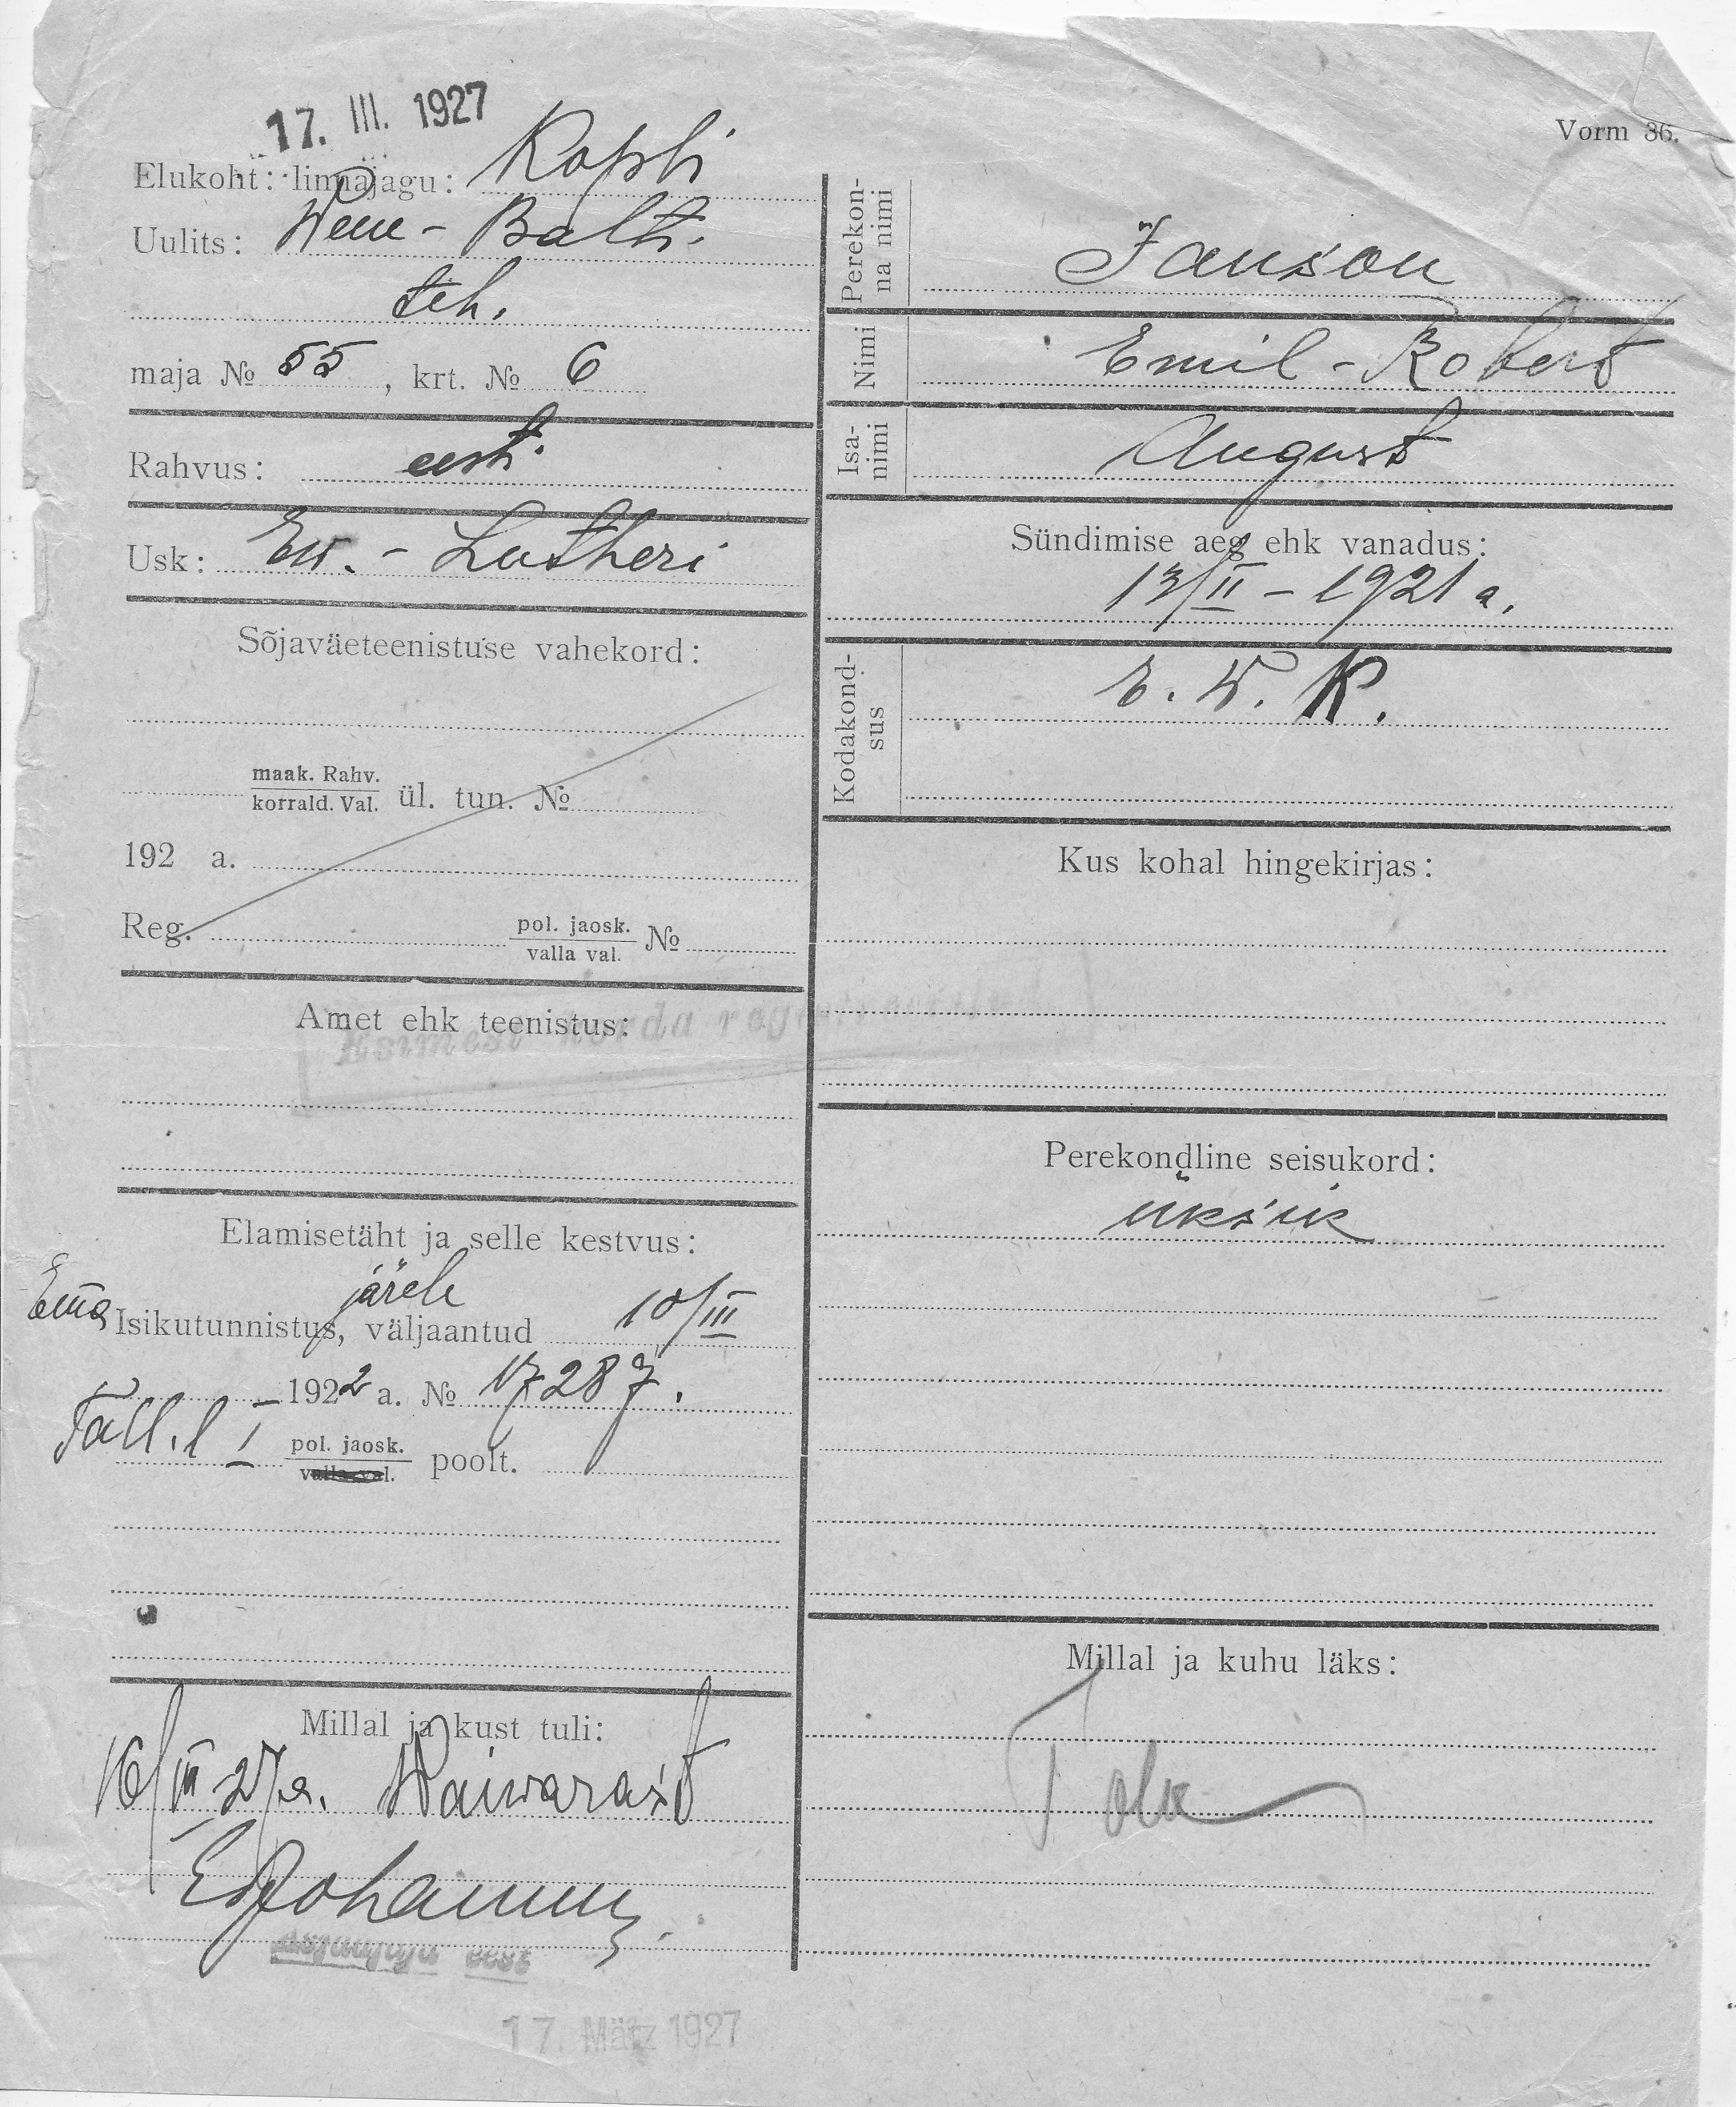 17. III. 1927
Vorm 36.
Elukoht: linnajagu: Kopli
Uulits: Wene-Balti.
teh.
maja № 55, krt. № 6
Rahvus: eesti
Usk: Ew.-Lutheri
Sõjaväeteenistuse vahekord:
maak. Rahv.
korrald. Val. ül. tun. №
192 a.
Reg. pol. jaosk.
valla val. №
Amet ehk teenistus:
Esimest korda reg
Elamisetäht ja selle kestvus:
Ema järele
Isikutunnistus, väljaantud 10/III
1922 a. № 17287.
Tall. l I pol. jaosk.
valla val. poolt.
Millal ja kust tuli:
16/III 27 a. Waiwarast
17. März 1927
Perekon-
na nimi Janson
Nimi Emil-Robert
Isa-
nimi August
Sündimise aeg ehk vanadus:
13/II - 1921 a.
Kodakond-
sus E. W. K.
Kus kohal hingekirjas:
Perekondline seisukord:
üksik
Millal ja kuhu läks: